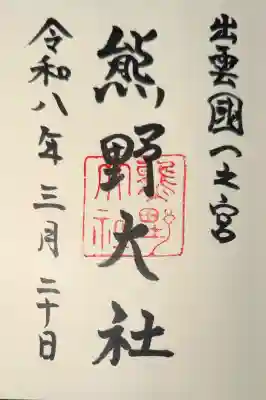 出雲國一之宮
熊野大社
令和八年三月二十日
熊野
大社